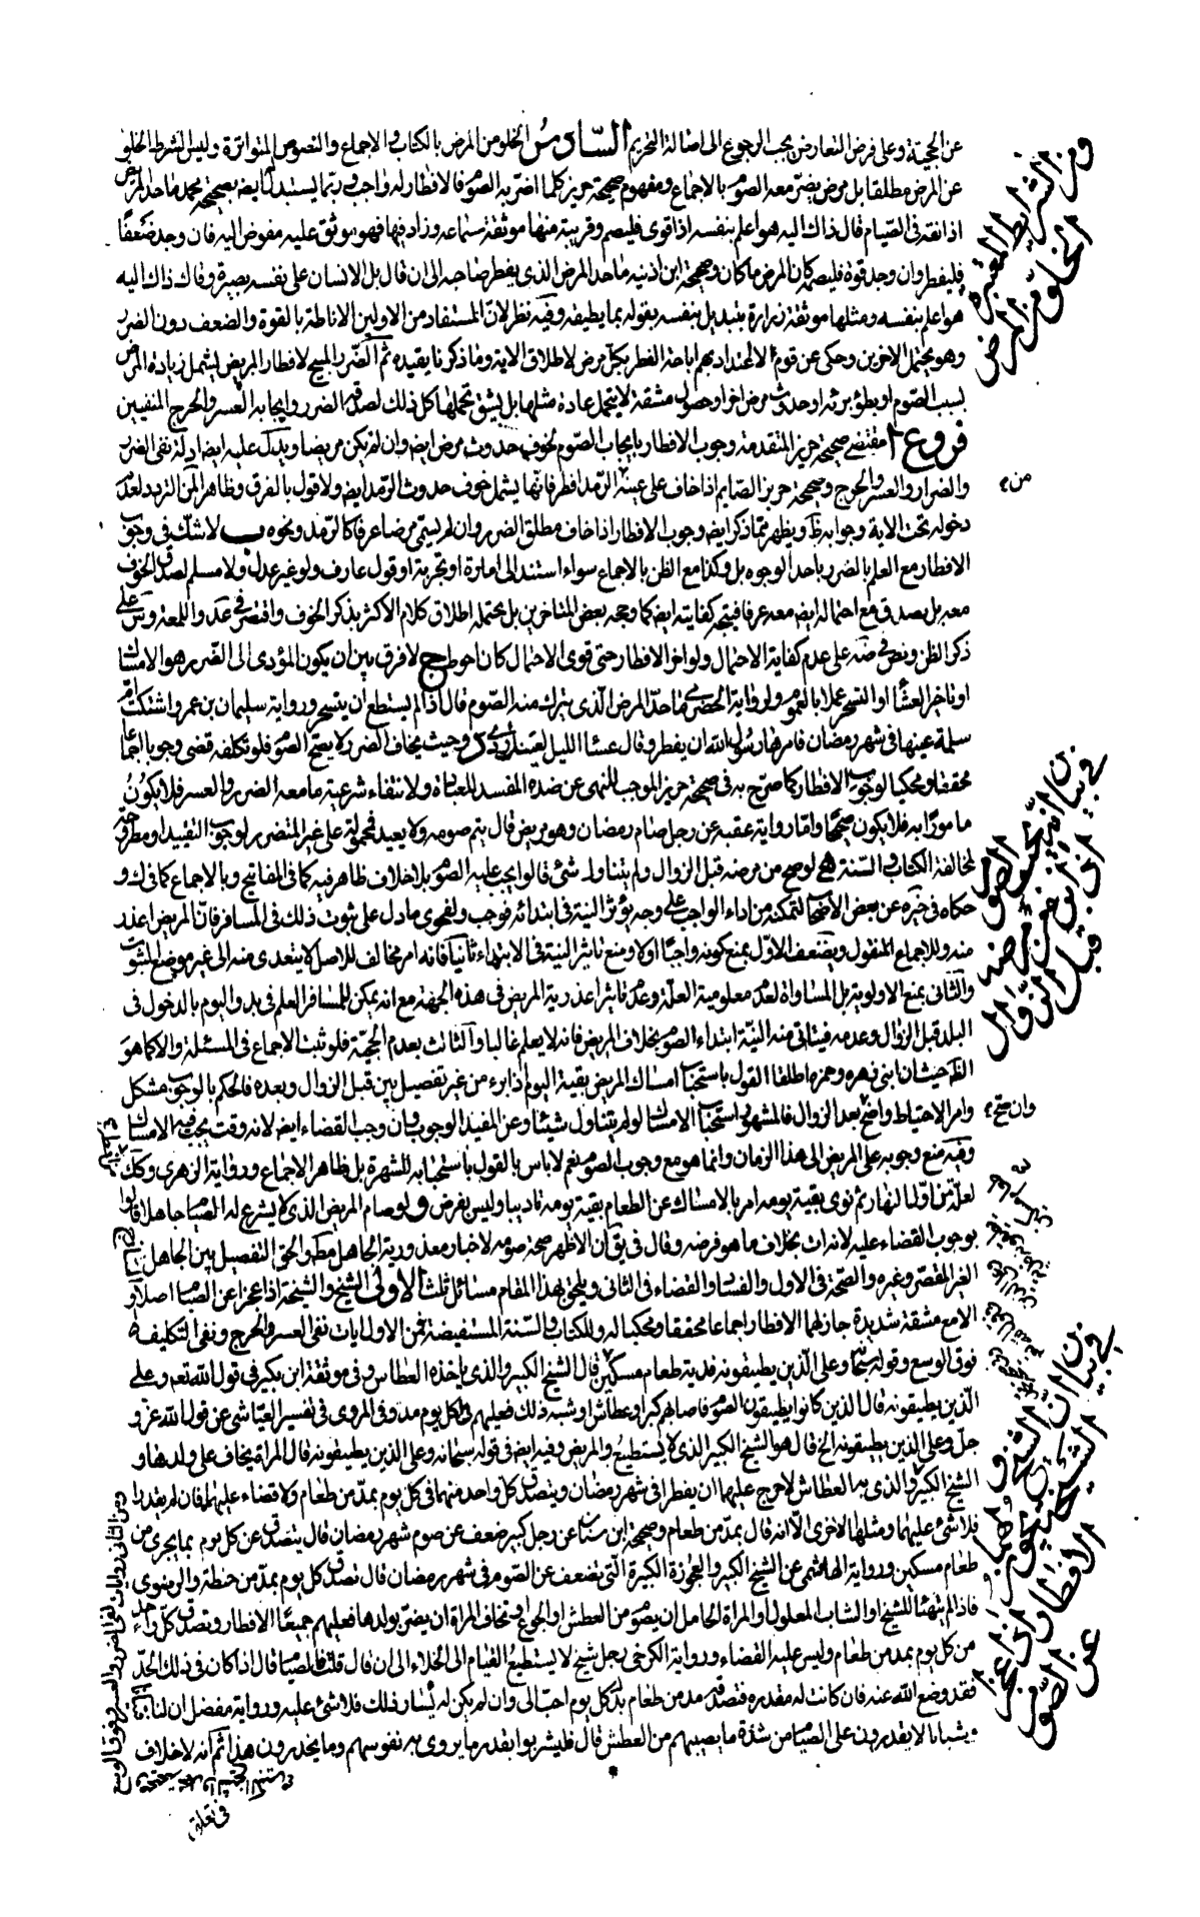 عن الحجية وعلى فرض التعارض يجب الرجوع الى اصالة التحريم السادس الخلو من المرض بالكتاب والاجماع والنصوص المتواترة وليس الشرط الخلو
عن المرض مطلقا بل مرض يضر معه الصوم بالاجماع ومفهوم صحيحة حريز كلما اضر به الصوم فالافطار له واجب وربما يستبدل ايضه بصحيحة محمد ما حد المرض
اذا نقه فى الصيام قال ذاك اليه هو اعلم بنفسه اذا قوى فليصم وقريبة منها موثقة سماعه وزاد فيها فهو موثق عليه مفوض اليه فان وجد ضعفا
فليفطر وان وجد قوة فليصمه كان المرض ما كان وصحيحة ابن اذينه ما حد المرض الذى يفطر صاحبه الى ان قال بل الانسان على نفسه بصيرة وقال ذاك اليه
هو اعلم بنفسه ومثلها موثقة زرارة بتبديل بنفسه بقوله بما يطيقه وفيه نظر لان المستفاد من الاولين الاناطة بالقوة والضعف دون الضرر
وهو محتمل الاخرين وحكى عن قوم لا اعتداد بهم اباحة الفطر بكل مرض لاطلاق الاية وما ذكرنا يقيده ثم الضرر المبيح لافطار المريض يشمل زيادة المرض
بسبب الصوم او بطؤ برئه او حدوث مرض اخر او حصول مشقة لا يتحمل عادة مثلها بل يشق تحملها كل ذلك لصدق الضرر وايجابه العسر والحرج المنفيين
فروع ا مقتضى صحيحة حريز المتقدمة وجوب الافطار بايجاب الصوم لخوف حدوث مرض ايضه وان لم يكن مريضا ويدل عليه ايضه ادلة نفى الضرر
والضرار والعسر والحرج وصحيحة حريز الصايم اذا خاف على عينيه من الرمد افطر فانها يشمل خوف حدوث الرمد ايضه ولا قول بالفرق وظاهر المن التردد لعدم
دخوله تحت الاية وجوابه ظ ويظهر مما ذكر ايضه وجوب الافطار اذا خاف مطلق الضرر وان لم يسمى مرضا عرفا كالرمد ونحوه ب لا شك فى وجوب
الافطار مع العلم بالضرر باحد الوجوه بل وكذا مع الظن بالاجماع سواء استند الى امارة او تجربة او قول عارف ولو غير عدل ولا مسلم لصدق الخوف
معه بل يصدق مع احتماله ايضه معه عرفا فيتجه كفايته ايضه كما رجحه بعض المتاخرين بل يحتمله اطلاق كلام الاكثر بذكر الخوف واقتصر فى عد واللمعة وس على
ذكر الظن ونص فى ضه على عدم كفاية الاحتمال ولو اخر الافطار حتى قوى الاحتمال كان احوط ج لا فرق بين ان يكون المؤدى الى الضرر هو الامساك
او تاخر العشا او التسحر عملا بالعموم ولرواية الحضرمى ما حد المرض الذى يترك منه الصوم قال اذا لم يستطع ان يتسحر ورواية سليمان بن عمرو اشتكت ام
سلمة عينها فى شهر رمضان فامرها رسول الله ان يفطر وقال عشاء الليل لعينك ردى د وحيث يخاف الضرر لا يصح الصوم فلو تكلفه قضى وجوبا اجماعا
محققا ومحكيا لوجوب الافطار كما صرح به فى صحيحة حريز الموجب للنهى عن ضده المفسد للعبادة ولانتفاء شرعيته ما معه الضرر والعسر فلا يكون
مامورا به فلا يكون صحيحا واما رواية عقبه عن رجل صام رمضان وهو مريض قال يتم صومه ولا يعيد فمحمولة على غير المتضرر لوجوب التقييد او مطروحة
لمخالفة الكتاب والسنة ه لو صح من مرضه قبل الزوال ولم يتناول شئ قالوا يجب عليه الصوم بلا خلاف ظاهر فيه كما فى المفاتيح وبالاجماع كما فى ك و
حكاه فى خيره عن بعض الاصحاب لتمكنه من اداء الواجب على وجه يؤثر النية فى ابتدائه فوجب ولفحوى ما دل على ثبوت ذلك فى المسافر فان المريض اعذر
منه وللاجماع المنقول ويضعف الاول بمنع كونه واجبا اولا ومنع تاثير النية فى الابتداء ثانيا فانه امر مخالف للاصل لا يتعدى منه الى غير موضع الثبوت
والثانى بمنع الاولوية بل المساواة لعدم معلومية العلة وعدم تاثير اعذرية المريض فى هذه الجهة مع انه يمكن للمسافر العلم فى بدو اليوم بالدخول فى
البلد قبل الزوال وعدمه فيتاتى منه النية ابتداء الصوم بخلاف المريض فانه لا يعلم غالبا والثالث بعدم الحجية فلو ثبت الاجماع فى المسئلة والا كما هو
الظ حيث ان ابنى زهره وحمزه اطلقا القول باستحباب امساك المريض بقية اليوم اذا برء من غير تفصيل بين قبل الزوال وبعده فالحكم بالوجوب مشكل
وامر الاحتياط واضح وان صح بعد الزوال فالمشهور استحباب الامساك ولو لم يتناول شيئا وعن المفيد الوجوب وان وجب القضاء ايضه لانه وقت يجب فيه الامساك
وفيه منع وجوبه على المريض الى هذا الزمان وانما هو مع وجوب الصوم نعم لا باس بالقول باستحبابه للشهرة بل ظاهر الاجماع ورواية الزهرى وكل من افطر
لعلة من اول النهار ثم قوى بقية يومه امر بالامساك عن الطعام بقية يومه تاديبا وليس بفرض و لو صام المريض الذى لا يشرع له الصيام جاهلا قالوا
بوجوب القضاء عليه لانه اتى بخلاف ما هو فرضه وقال فى يق ان الاظهر صحة صومه لاخبار معذورية الجاهل مطه والحق التفصيل بين الجاهل
الغير المقصر وغيره والصحة فى الاول والفساد والقضاء فى الثانى ويلحق بهذا المقام مسائل ثلث الاولى الشيخ والشيخة اذا عجزا عن الصيام اصلا او
الا مع مشقة شديدة جاز لهما الافطار اجماعا محققا ومحكيا له وللكتاب والسنة المستفيضة فمن الاول ايات نفى العسر والحرج ونفى التكليف
فوق الوسع وقوله سبحانه وعلى الذين يطيقونه فدية طعام مسكين قال الشيخ الكبير والذى ياخذه العطاس وفى موثقة ابن بكير فى قول الله تعالى وعلى
الذين يطيقونه قال الذين كانوا يطيقون الصوم فاصابهم كبر او عطاش او شبه ذلك فعليهم لكل يوم مد وفى المروى فى تفسير العياشى عن قول الله عز و
جل وعلى الذين يطيقونه الخ قال هو الشيخ الكبير الذى لا يستطيع والمريض وفيه ايضه فى قوله سبحانه وعلى الذين يطيقونه قال المراة يخاف على ولدها و
الشيخ الكبير والذى به العطاش لا حرج عليهما ان يفطرا فى شهر رمضان ويتصدق كل واحد منهما فى كل يوم بمد من طعام ولا قضاء عليهما فان لم يقدرا
فلا شئ عليهما ومثلها الاخرى الا انه قال بمد من طعام وصحيحة ابن سنان عن رجل كبير ضعف عن صوم شهر رمضان قال يتصدق عن كل يوم بما يجزى من
طعام مسكين ورواية الهاشمى عن الشيخ الكبير والعجوزة الكبيرة التى تضعف عن الصوم فى شهر رمضان قال تصدق كل يوم بمد من حنطة والرضوى
فاذا لم يتهيأ للشيخ او الشاب المعلول او المراة الحامل ان يصوم من العطش او الجوع او تخاف المراة ان يضر بولدها فعليهم جميعا الافطار وتصدق كل واحد
من كل يوم بمد من طعام وليس عليه القضاء ورواية الكرخى رجل شيخ لا يستطيع القيام الى الخلاء الى ان قال قلت فالصيام قال اذا كان فى ذلك الحد
فقد وضع الله عنه فان كانت له مقدره فتصدقه مد من طعام بدل كل يوم احب الى وان لم يكن له يسار ذلك فلا شئ عليه ورواية مفضل ان لنا
شبابا لا يقدرون على الصيام من شدة ما يصيبهم من العطش قال فليشربوا بقدر ما يروى به نفوسهم وما يحذرون هذا ثم انه لا خلاف
فى تعلق
ومن الشرايط المعتبره الخلو من المرض
من
فى بيان انه يجب الصوم ان برئ من مرضه قبل الزوال
وان صح
فى بيان ان الشيخ والشيخة يجوز لهما الافطار اذا عجزا عن الصوم
ومن الثانى روايات نفى الضرر والعسر وفوق الوسع